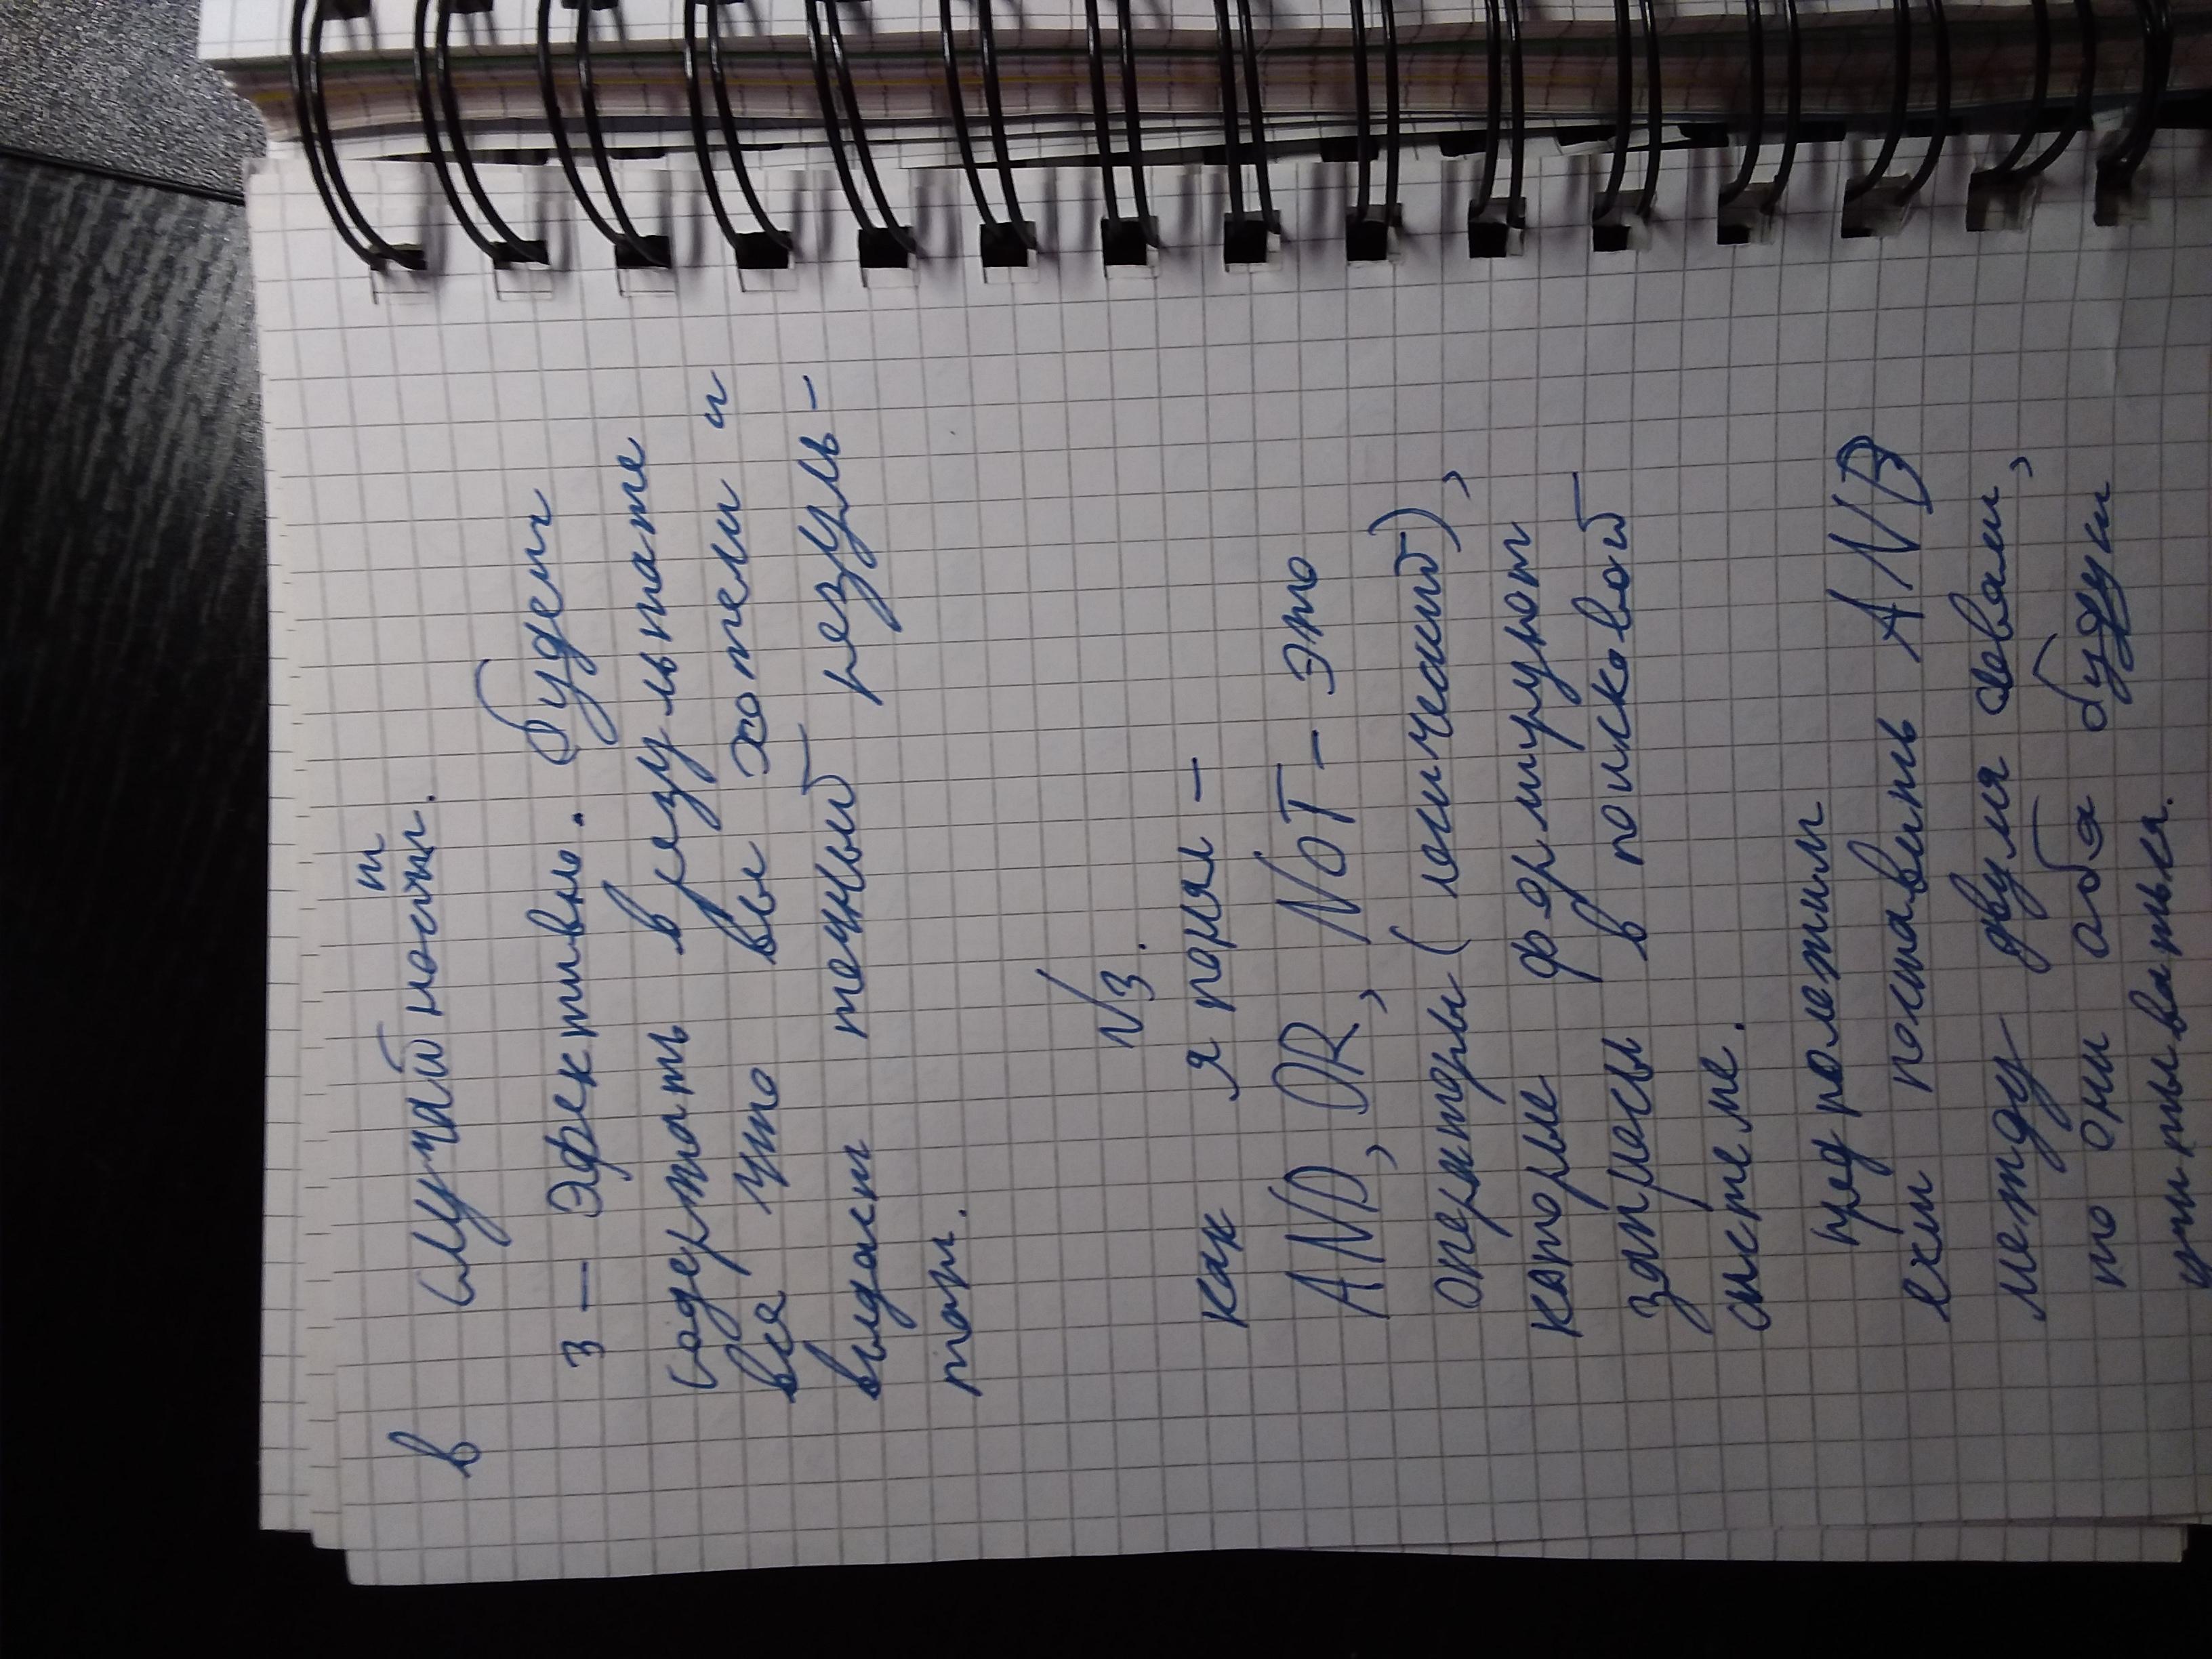 в случайности.
т
3 — Эфективно. будет
содержать в результате
вся что вы хотели и
выдаст точный резуль-
тат.
N3.
как я понял -
AND, OR, NOT - это
операторы (логический),
которые формируют
запросы в поисковой
системе.
предположим
если поставить AND
между двумя словами,
то они оба будут
учитываться.